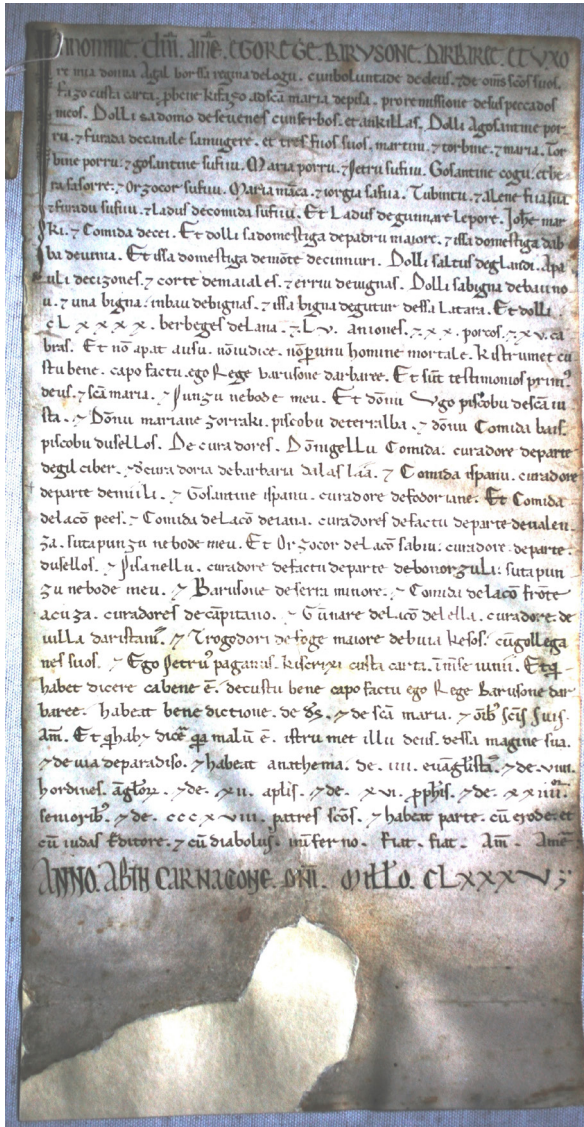 IN NOMINE. dñi. amē. EGO REGE. BARUSONE. DARBAREE. ET UXO
re mia donna Agal borssa regina delogu. cunboluntade de deus. ⁊ de om̄s sc̄os suos.
fazo custa carta. p bene ki fazo ad sc̄a maria de pisa. pro remissione de sus peccados
meos. Dolli sa domo de seuenes cun serbos. et ankillas. Dolli Agosantine por
ru. ⁊ furada decanale sa mugere. et tres fiios suos. martinu. ⁊ torbine. ⁊ maria. Tor
bine porru. ⁊ gosantine sufiiu. Maria porru. ⁊ Petru sufiiu. Gosantine cogu. et be
ra sasorre. ⁊ Orzocor sufiiu. Maria manca. ⁊ iorgia safiia. Tubintu. ⁊ alene fiia sua
⁊ furadu sufiiu. ⁊ ladus de comida sufiiu. Et Ladus de gunnare lepore. Johē mar
ki. ⁊ Comida decei. Et dolli sa domestiga de padru maiore. ⁊ issa domestiga dab
ba de uinna. Et issa domestiga de mōte de cinnuri. Dolli saltus de glandi. A pa
uli de cizones. ⁊ corte de maiales. ⁊ erriu de uignas. Dolli sa bigna de bau no
u. ⁊ una bigna. in bau de bignas. ⁊ issa bigna de gutur dessa Latara. Et dolli
CLXXXX. berbeges de lana. ⁊ LV. anione. ⁊ XX. porcos. ⁊ XV. ca
bras. Et nō apat ausu. nō iudice. nō perunu homine mortale. Ki strumet cu
stu bene. capo factu. ego Rege barusone darbaree. Et sūt testimonios primᵒ
deus. ⁊ sc̄a maria. ⁊ Punzu nebode meu. Et dōnu Ugo piscobu de sc̄a iu
sta. ⁊ Dōnu mariane zorraki. piscobu de terralba. ⁊ dōnu Comida bais.
piscobu dusellos. De curadores. Dōnigellu Comida. curadore de parte
de gil ciber. ⁊ de curadoria de barbaria. ⁊ Comida ispanu. curadore
de parte de miili. ⁊ Gosantine ispanu. curadore de fodoriane. Et Comida
de lacō pees. ⁊ Comida de lacō de iana. curadores de factu de parte de ualen
za. suta punzu nebode meu. Et Orzocor de lacō sabiu. curadore. de parte.
dusellos. ⁊ Pisanellu. curadore de factu de parte de bonorzuli. suta pun
zu nebode meu. ⁊ Barusone de serra minore. ⁊ Comida de lacō frōte
acuza. curadores de cāpitano. ⁊ Gūnare de lacō de lella. curadore. de
uilla daristanīs. ⁊ Trogodori de foge maiore de buia kesos. cū gollega
nes suos. ⁊ Ego Petruˢ paganus. ki scrixi custa carta. ī mēse iunii. Et qi
habet dicere ca bene ē. de custu bene capo factu ego Rege Barusone dar
baree. habeat benedictione. de dˢ. ⁊ de sc̄a maria. ⁊ oīb sc̄is suis.
Am̄. Et qi habꝫ dicē qa malū ē. istrumet illu deus. dessa magine sua.
⁊ de uia de paradiso. ⁊ habeat anathema. de. iiii. euāgłista. ⁊ de. viiii.
hordines. āgłorꝝ. ⁊ de. xii. aplis. ⁊ de. xvi. pphis. ⁊ de. xxiiii.
seniorib. ⁊ de. cccxviii. patres sc̄os. ⁊ habeat parte. cū erode. et
cū iudas traditore. ⁊ cū diabolus. in inferno. Fiat. fiat. Am̄. Amē.
ANNO. AB INCARNACIONE. DNI. MILLO. CLXXXV;